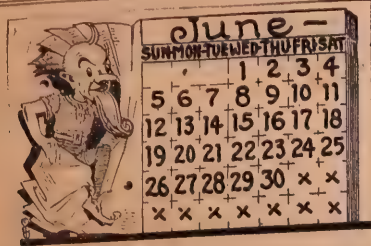 June -
SUN-MON-TUE WED-THU FRI SAT
1 2 3 4
5 6 7 8 9 10 11
12 13 14 15 16 17 18
19 20 21 22 23 24 25
26 27 28 29 30 x x
x x x x x x x